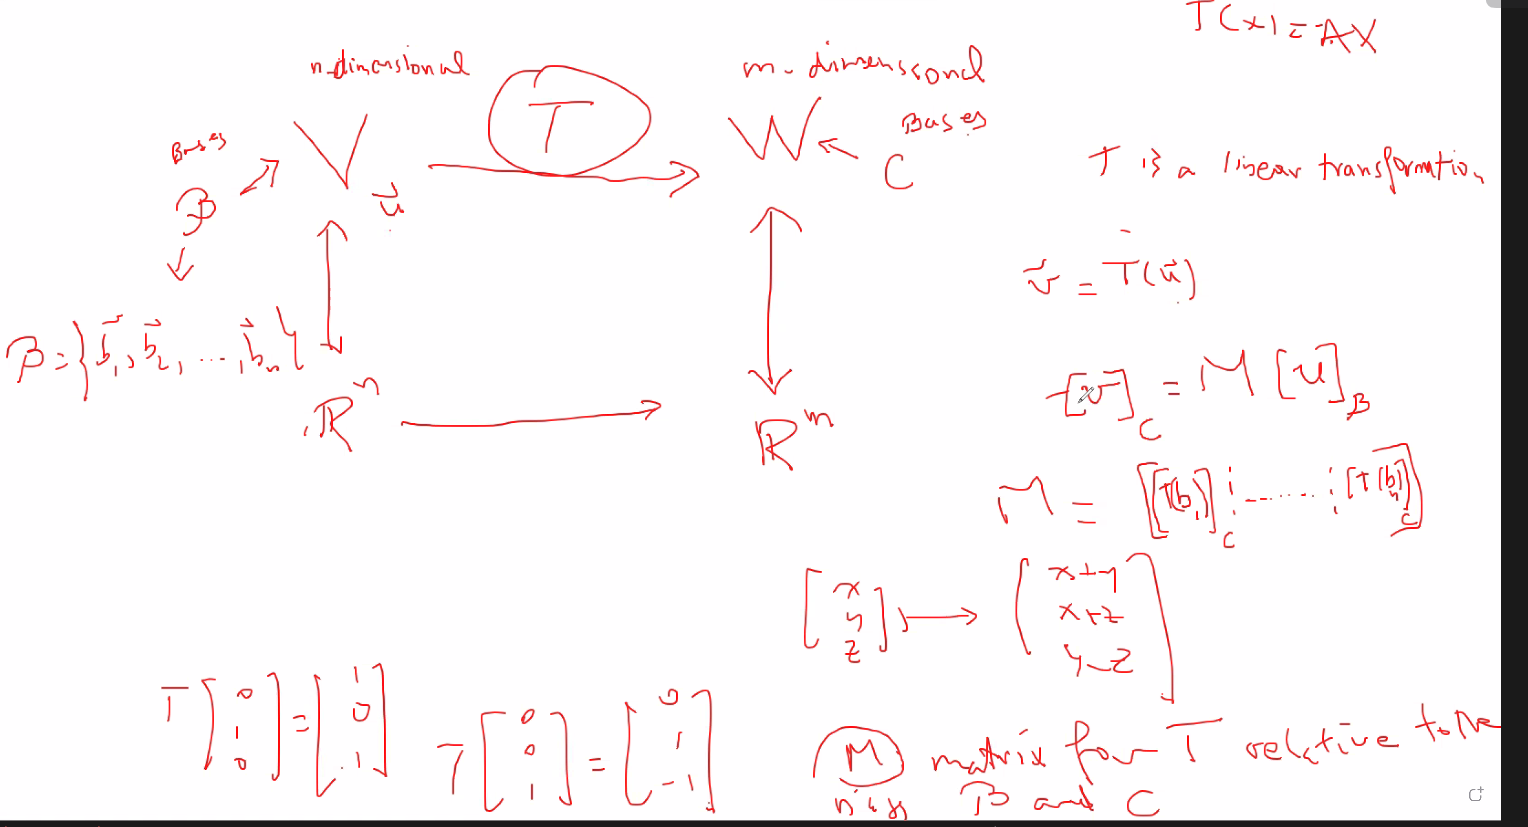 T(x) = AX
n-dimensional
m-dimensional
T
Bases
V
W
Bases
C
B
u⃗
T is a linear transformation
v⃗ = T(u⃗)
B = {b⃗₁, b⃗₂, ..., b⃗ₙ}
ℝⁿ
ℝᵐ
[v]_C = M [u]_B
M = [[T(b₁)]_C ⋮ ...... ⋮ [T(bₙ)]_C]
[x y z] → [x+y x+z y-z]
T [0 1 0] = [1 0 1]
T [0 0 1] = [0 1 -1]
M matrix for T relative to the
B and C